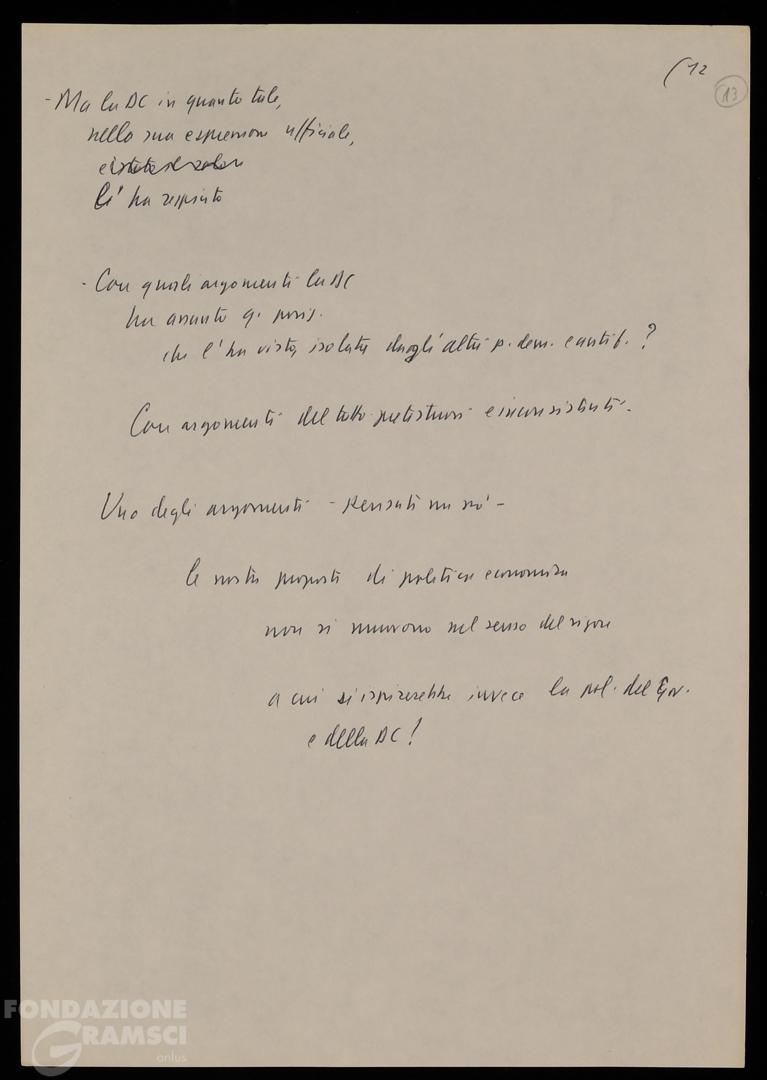 (12
13
- Ma la DC in quanto tale,
nella sua espressione ufficiale,
l'ha respinto
- Con quali argomenti la DC
ha assunto q. posiz.
che l'ha vista isolata dagli altri p. dem. e antif. ?
Con argomenti del tutto pretestuosi e inconsistenti.
Uno degli argomenti - pensate un po' -
le nostre proposte di politica economica
non si muovono nel senso del rigore
a cui si ispirerebbe invece la pol. del Gov.
e della DC!
FONDAZIONE
GRAMSCI
onlus